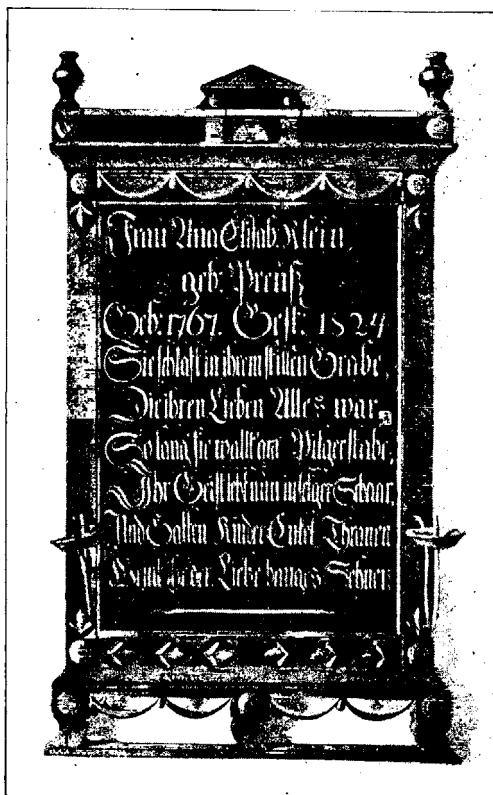 Frau Ana Elisab. Klein,
geb. Preuß
Geb: 1767. Gest: 1824
Sie schlaft in ihrem stillen Grabe,
Die ihren Lieben Alles war,
So lang sie wallt am Pilgerstabe,
Ihr Geist lebt nun in selger Schaar
Und Gatten Kinder Enkel Thranen
der Liebe banges Sehnen